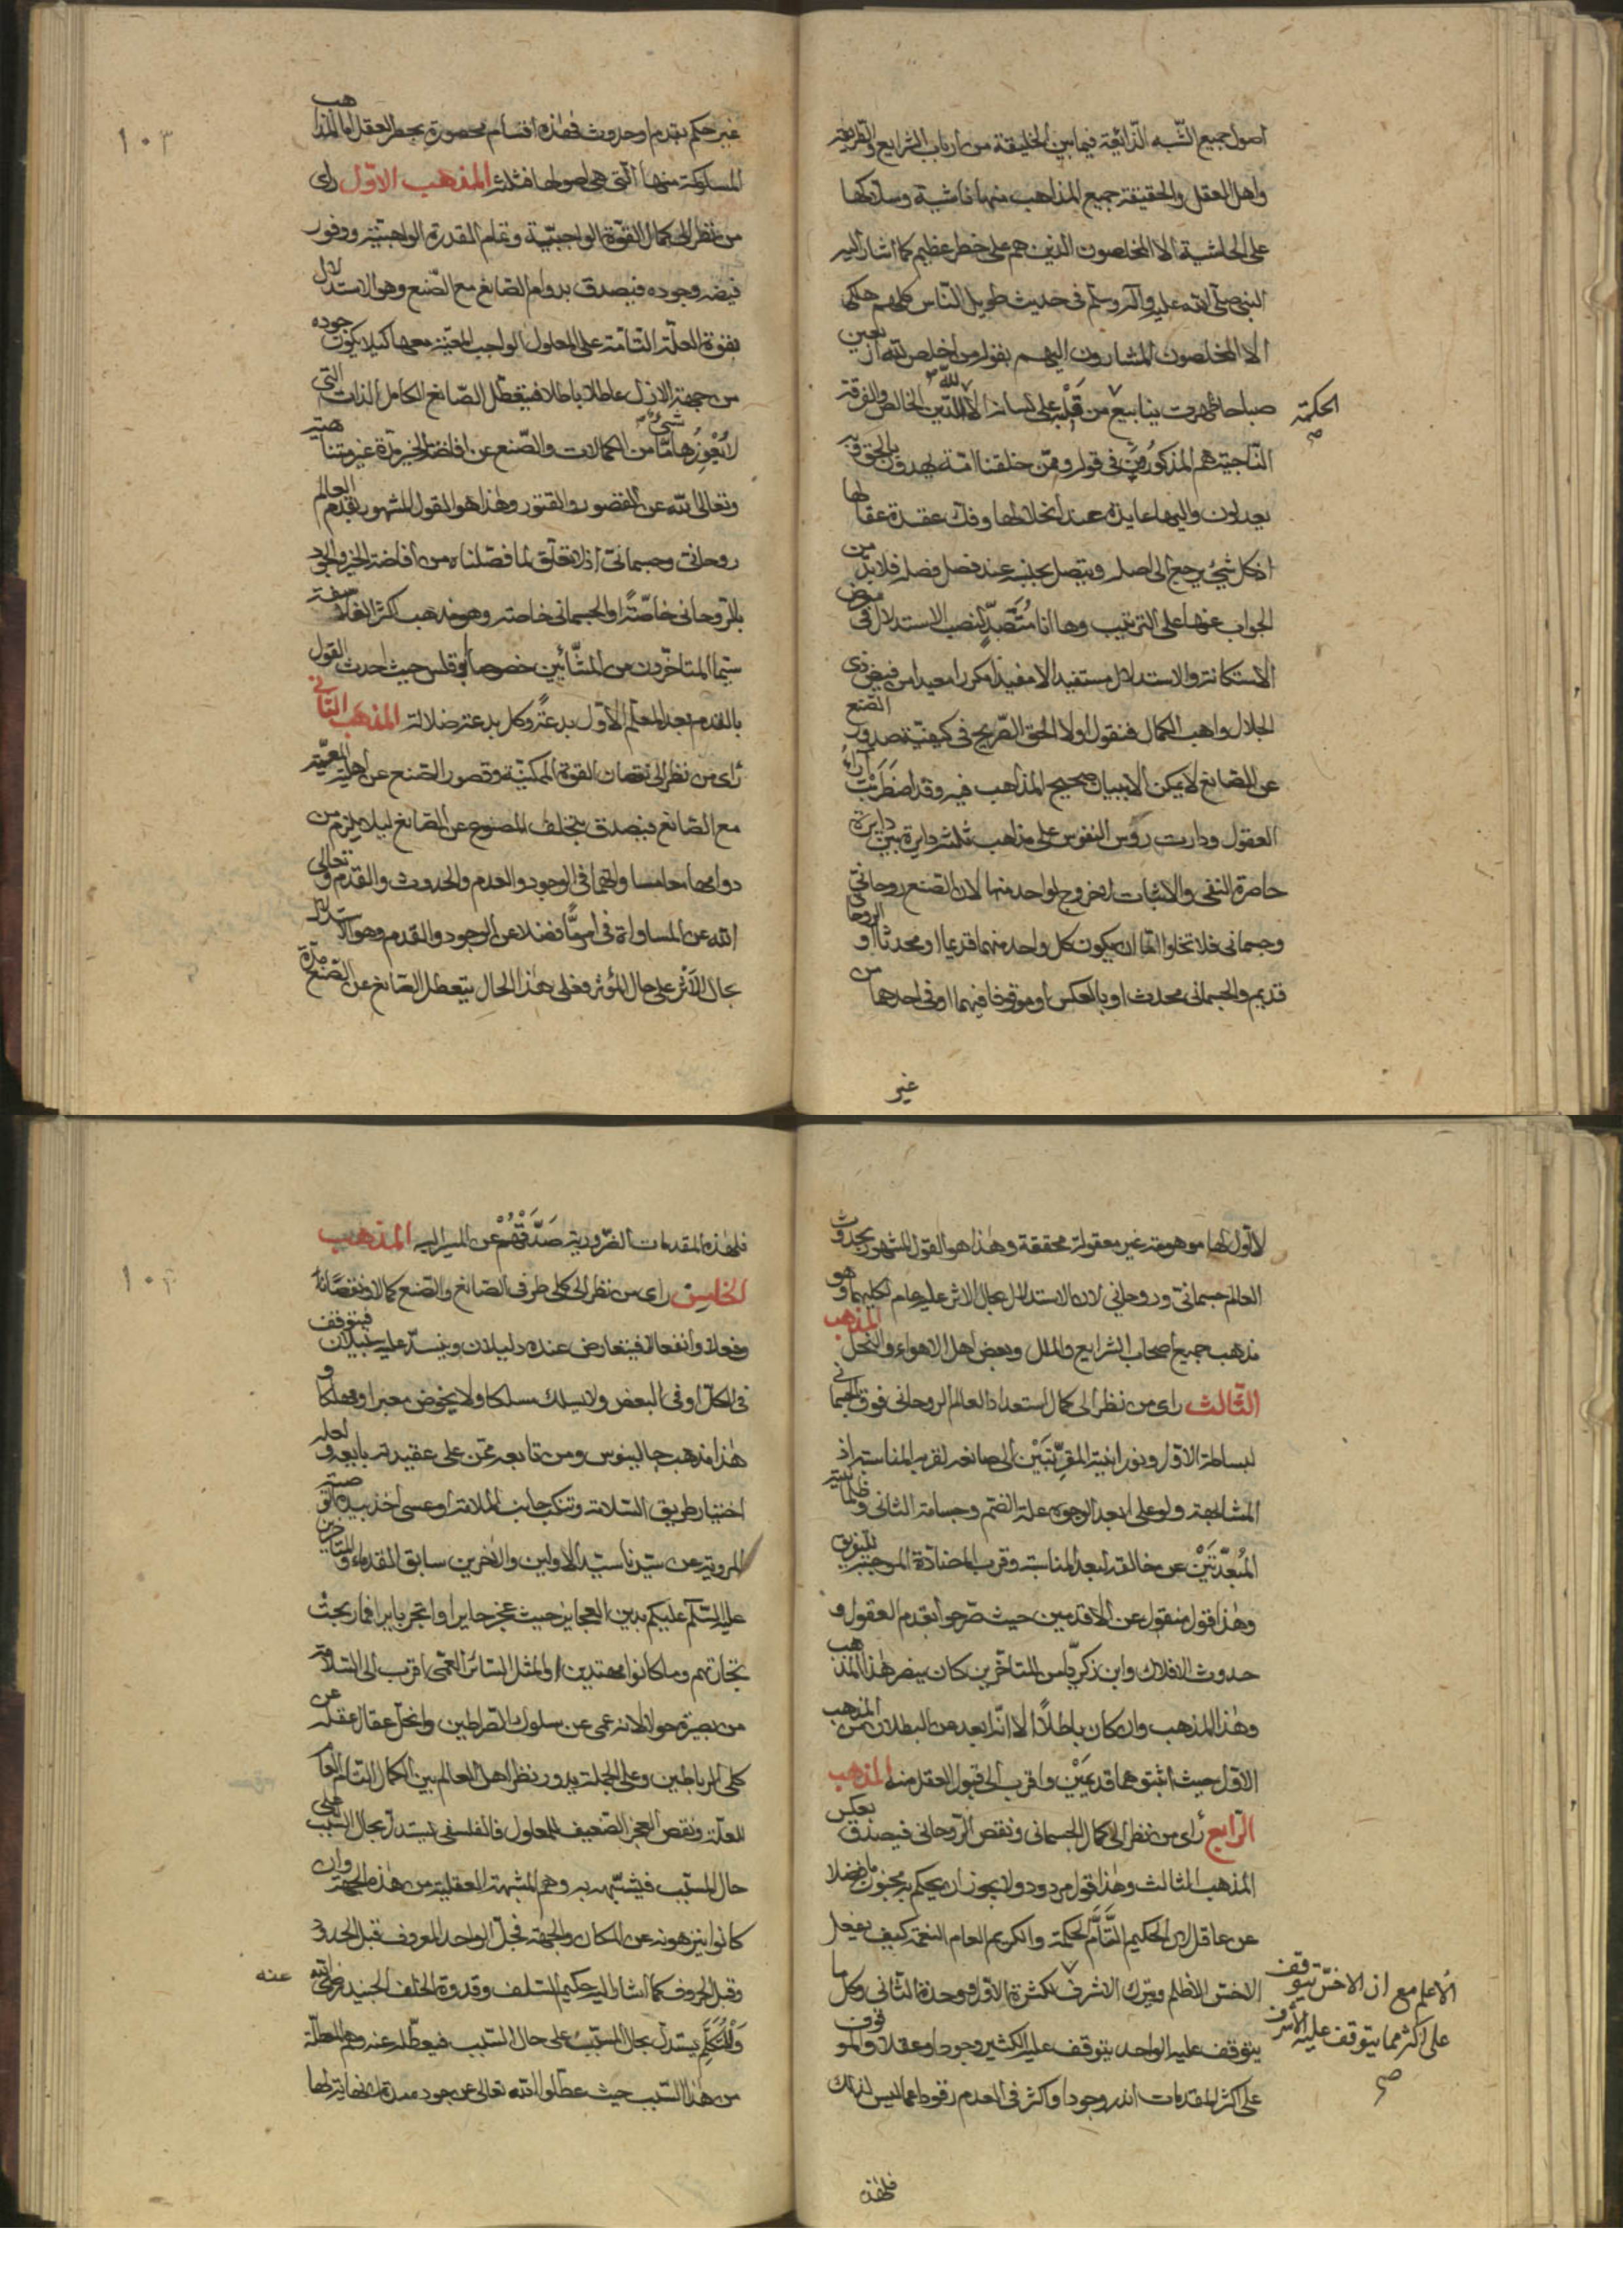 اصول جميع الشبه الذائعة فيما بين الخليقة من ارباب الشرايع والطريقة
واهل العقل والحقيقة جميع المذاهب منها ناشية وسلاكها
على الحاشية الا المخلصون الذين هم على خطر عظيم كما اشار اليه
النبي صلى الله عليه وآله وسلم في حديث طويل الناس كلهم هلكى
الا المخلصون المشارون اليهم بقوله من اخلص لله اربعين
صباحا ظهرت ينابيع الحكمة من قلبه على لسانه الا لله الدين الخالص والفرقة
الناجية هم المذكورون في قوله وممن خلقنا امة يهدون بالحق وبه
يعدلون واليها عايدة عند انحلالها وفك عقدة عقالها
اذ كل شيء يرجع الى اصله ويتصل بجنسه عند فصل فصله فلا بد من
الجواب عنها على الترتيب وها انا متصد لنصب الاستدلال في معرض
الاستكانة والاستدلال مستفيدا لا مفيدا مكررا معيدا من فيض ذي
الجلال واهب الكمال فنقول اولا الحق الصريح في كيفية صدور الصنع
عن الصانع لا يمكن الا ببيان صحيح المذاهب فيه وقد اضطربت آراء
العقول ودارت رؤس النفوس على مذاهب ثلثة دايرة بين دايرة
حاصرة النفي والاثبات لا خروج لواحد منها لان الصنع روحاني
وجسماني فلا تخلوا اما ان يكون كل واحد منهما قديما او محدثا او الروحاني
قديم والجسماني محدث او بالعكس او موقوفا فيهما او في احدهما من
غير
غير حكم بقدم او حدوث فهذه اقسام محصورة بحصر العقل اما المذاهب
المسلوكة منها التي هي اصولها فثلثة المذهب الاول راى
من نظر الى كمال القوة الواجبية وتمام القدرة الواهبية ووفور
فيضه وجوده فيصدق بدوام الصانع مع الصنع وهو الاستدلال
بقوة العلة التامة على المعلول الواجب المعية معها كيلا يكون جوده
من جهة الازل عاطلا باطلا فيتعطل الصانع الكامل الذات التي
لا يعوزها شيء ما من الكمالات والصنع عن افاضة الخير مدة غير متناهية
وتعالى الله عن القصور والفتور وهذا هو القول المشهور بقدم العالم
روحاني وجسماني اذ لا تعلق لما فصلناه من افاضة الخير والجود
بالروحاني خاصة او الجسماني خاصة وهو مذهب اكثر الفلاسفة
سيما المتاخرون من المشائين خصوصا ابرقلس حيث احدث القول
بالقدم بعد المعلم الاول بدعة وكل بدعة ضلالة المذهب الثاني
راى من نظر الى نقصان القوة الممكنية وقصور الصنع عن اهلية المعية
مع الصانع فيصدق بتخلف المصنوع عن الصانع ليلا يلزم من
دوامهما معا مساواتهما في الوجود والعدم والحدوث والقدم وتعالى
الله عن المساواة في امر ما فضلا عن الوجود والقدم وهو الاستدلال
بحال الاثر على حال المؤثر وفعلى هذا الحال يتعطل الصانع عن الصنع مدة
١٠٣
لا اول لها موهومة غير معقولة محققة وهذا هو القول المشهور بحدوث
العالم جسماني وروحاني لان الاستدلال بحال الاثر عليه عام لكليهما وهو
مذهب جميع اصحاب الشرايع والملل وبعض اهل الاهواء والنحل المذهب
الثالث راى من نظر الى كمال استعداد العالم الروحاني فوق الجسماني
لبساطة الاول ونورانيته المقربتين الى صانعه لقرب المناسبة اذ
المشابهة ولو على ابعد الوجوه علة الضم وجسامة الثاني وظلمانيته
المبعدتين عن خالقه لبعد المناسبة وقرب المضادة الموجبة للتفريق
وهذا قول منقول عن الاقدمين حيث صرحوا بقدم العقول و
حدوث الافلاك وابن زكريا من المتاخرين كان ينصر هذا المذهب
وهذا المذهب وان كان باطلا الا انه ابعد من البطلان من المذهب
الاول حيث اثبتوهما قديمين واقرب الى قبول العقل منه المذهب
الرابع راى من نظر الى كمال الجسماني ونقص الروحاني فيصدق بعكس
المذهب الثالث وهذا قول مردود ولا يجوز ان يحكم به مجنون ما فضلا
عن عاقل لان الحكيم التام الحكمة والكريم العام النعمة كيف يفعل
الاخس الاظلم ويترك الاشرف الاعلم مع ان الاخس يتوقف على اكثر مما يتوقف عليه الاشرف لكثرة الاول ووحدة الثاني وكل ما
يتوقف عليه الواحد يتوقف عليه الكثير وجودا وعقلا والموقوف
على اكثر المقدمات اندر وجودا واكثر في العدم رقودا مما ليس كذلك
فلهذه
فلهذه المقدمات الضرورية صدقهم عن الميل اليه المذهب
الخامس راى من نظر الى كلي طرفي الصانع والصنع كمالا ونقصانا
وفعلا وانفعالا فيتعارض عنده دليلان وينسد عليه سبيلان فيتوقف
في الكل او في البعض ولا يسلك مسلكا ولا يخوض معبرا ومهلكا و
هذا مذهب جالينوس ومن تابعه ممن على عقيدته بايعه ولعله
اختار طريق السلامة وتنكب جانب الملامة او عسى اخذ بيده توصية
المروية من سيدنا سيد الاولين والاخرين سابق القدماء والمتاخرين
عليه السلام عليكم بدين العجايز حيث عجز حايرا واتجر بايرا فما ربحت
تجارتهم وما كانوا مهتدين او المثل السائر العمى اقرب الى السلامة
من بصيرة حولا لانه عمي عن سلوك الصراطين وانحل عقال عقله عن
كلي الرباطين وعلى الجملة يدور نظر اهل العالم بين الكمال التام
للعلة ونقص العجز الضعيف للمعلول فالفلسفي يستدل بحال السبب على
حال المسبب فيشبه به وهم المشبهة العقلية من هذه الجهة وان
كانوا ينزهونه عن المكان والجهة فجل الواحد المعروف قبل الحدود
وقبل الحروف كما اشار اليه حكيم السلف وقدوة الخلف الجنيد رضي الله عنه
والمتكلم يستدل بحال المسبب على حال السبب فيعطله عنه وهم المعطلة
من هذا السبب حيث عطلوا الله تعالى عن جوده مدة لا نهاية لها